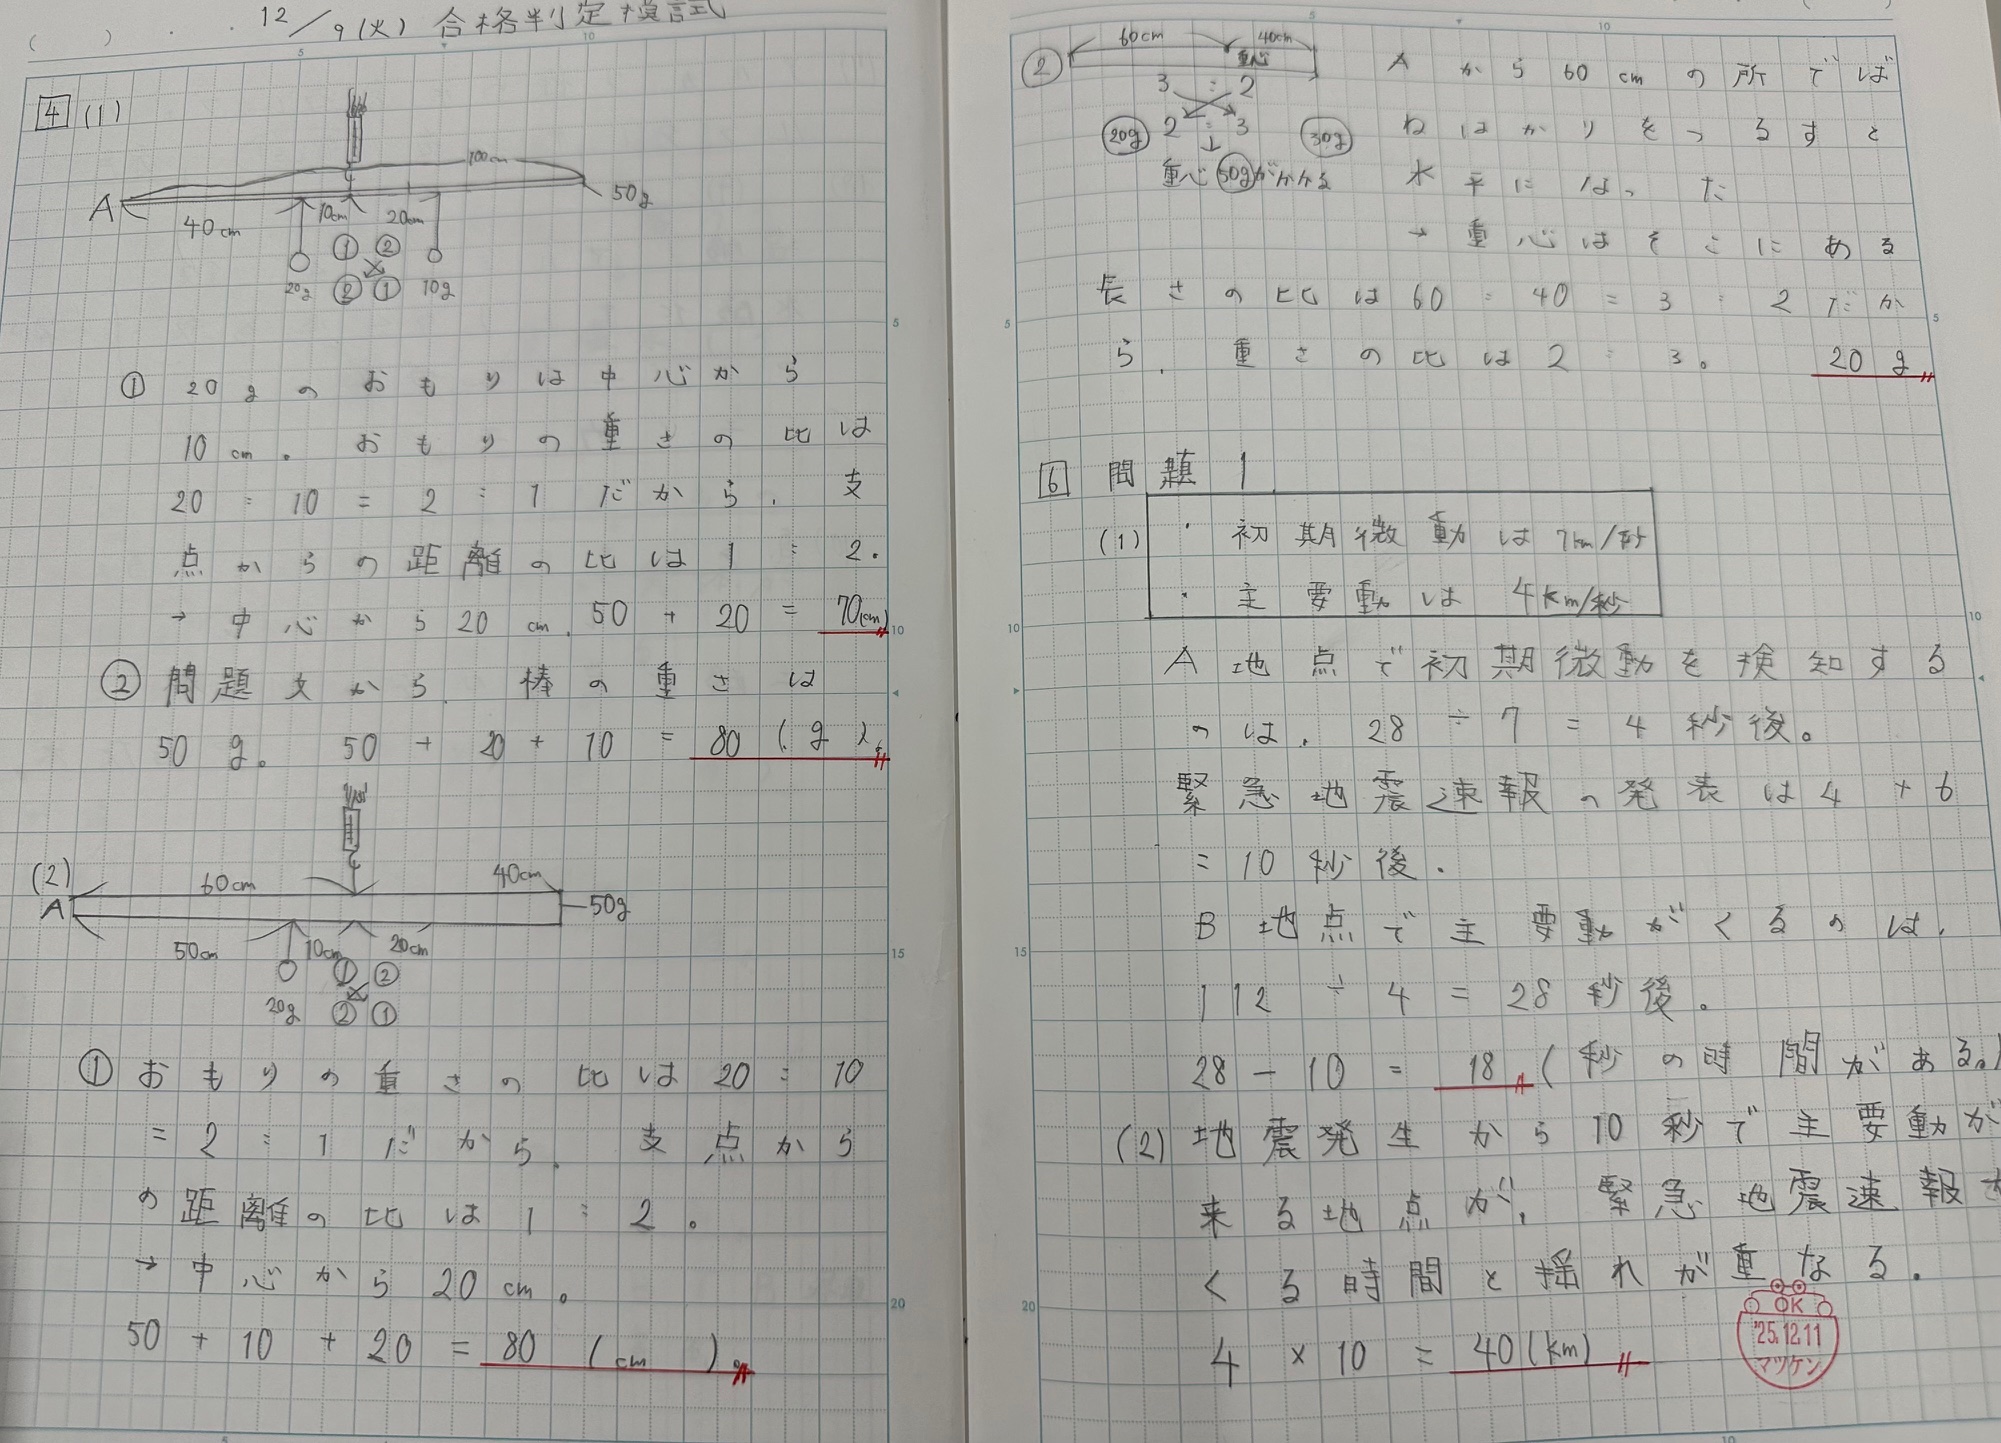 12/9(火) 合格判定模試
4 (1)
100cm
A
50g
40cm
10cm
20cm
① ②
20g ② ① 10g
① 20gのおもりは中心から
10cm。おもりの重さの比は
20:10=2:1だから、支
点からの距離の比は1:2。
→中心から20cm。50+20=70(cm)
② 問題文から、棒の重さは
50g。50+20+10=80(g)。
(2)
60cm
40cm
A
50g
50cm
10cm
20cm
① ②
20g ② ①
① おもりの重さの比は20:10
=2:1だから、支点から
の距離の比は1:2。
→中心から20cm。
50+10+20=80(cm)。
② 60cm 40cm
重心
3:2
20g 2:3 30g
↓
重心50gがかかる
Aから60cmの所でば
ねはかりをつるすと
水平になった
→重心はそこにある
長さの比は60:40=3:2だか
ら、重さの比は2:3。 20g
6 問題1
(1) ・初期微動は7km/秒
・主要動は4km/秒
A地点で初期微動を検知する
のは、28÷7=4秒後。
緊急地震速報の発表は4+6
=10秒後。
B地点で主要動がくるのは、
112÷4=28秒後。
28-10=18(秒の時間がある。)
(2) 地震発生から10秒で主要動が
来る地点が、緊急地震速報が
くる時間と揺れが重なる。
4×10=40(km)
OK
'25.12.11
マツケン